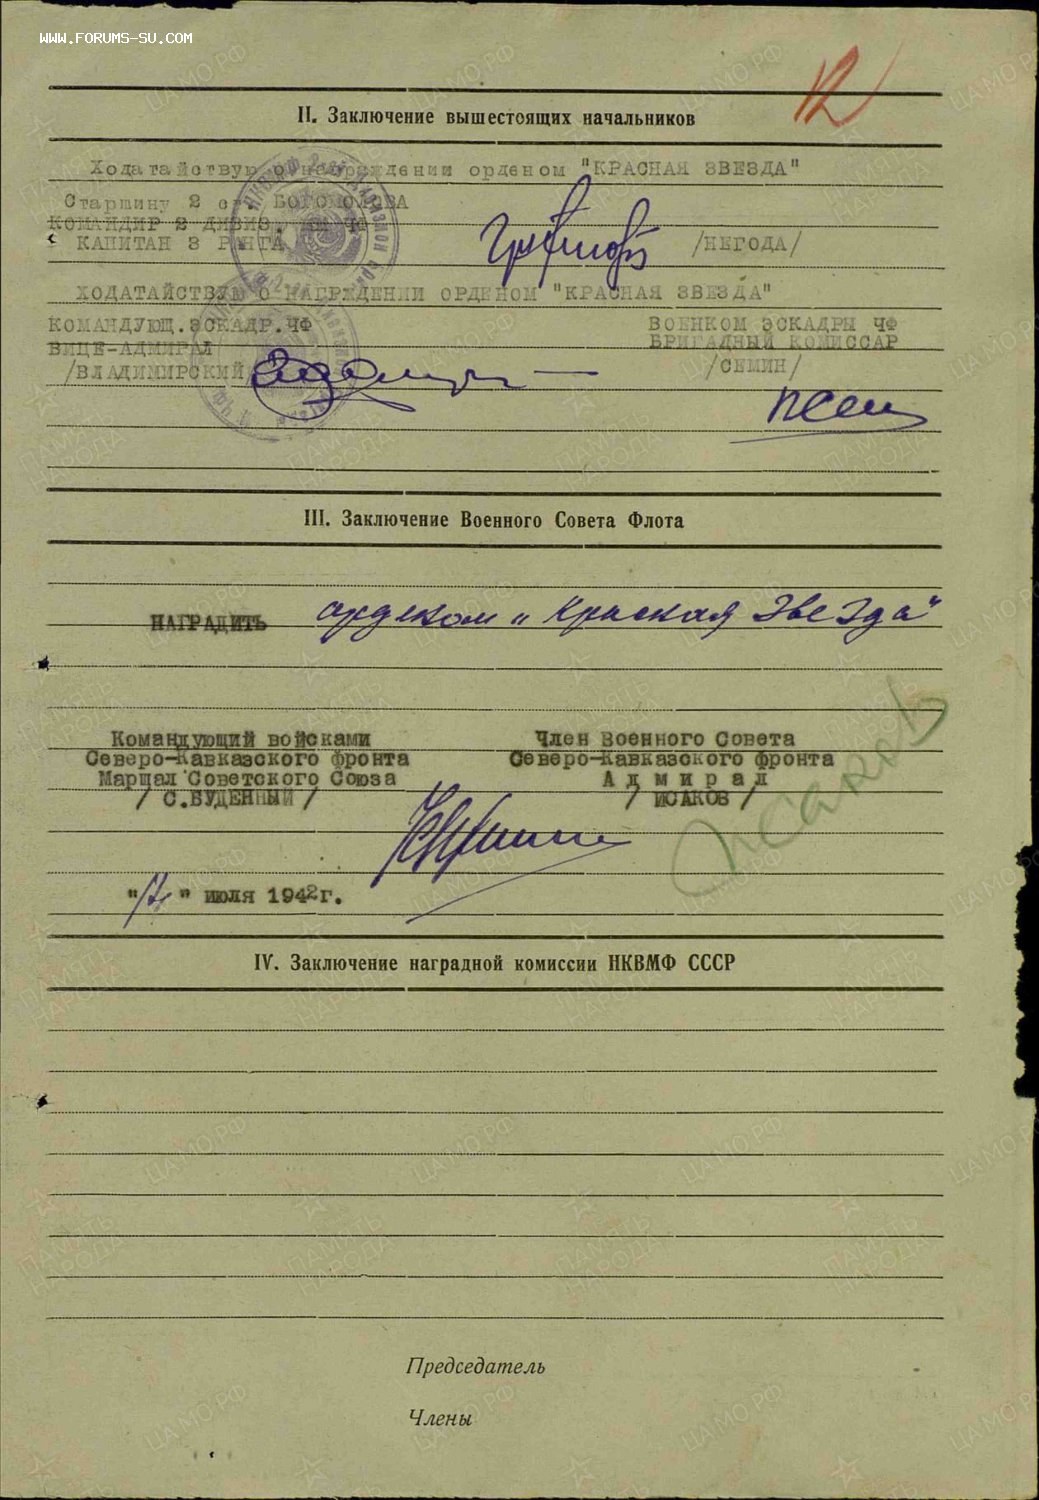 WWW.FORUMS-SU.COM
12
II. Заключение вышестоящих начальников
Ходатайствую о награждении орденом "КРАСНАЯ ЗВЕЗДА"
Старшину 2 ст. БОГОМОЛОВА
КОМАНДИР 2 ДИВИЗ. ЧФ
КАПИТАН 3 РАНГА /НЕГОДА/
ХОДАТАЙСТВУЮ О НАГРЖДЕНИИ ОРДЕНОМ "КРАСНАЯ ЗВЕЗДА"
КОМАНДУЮЩ.ЭСКАДР.ЧФ ВОЕНКОМ ЭСКАДРЫ ЧФ
ВИЦЕ-АДМИРАЛ БРИГАДНЫЙ КОМИССАР
/ВЛАДИМИРСКИЙ/ /СЕМИН/
III. Заключение Военного Совета Флота
НАГРАДИТЬ орденом „Красная Звезда"
Командующий войсками Член Военного Совета
Северо-Кавказского фронта Северо-Кавказского фронта
Маршал Советского Союза Адмирал
/ С.БУДЕННЫЙ / / ИСАКОВ /
Исаков
" " июля 1942г.
IV. Заключение наградной комиссии НКВМФ СССР
Председатель
Члены
ПАМЯТЬ НАРОДА
ЦАМО РФ